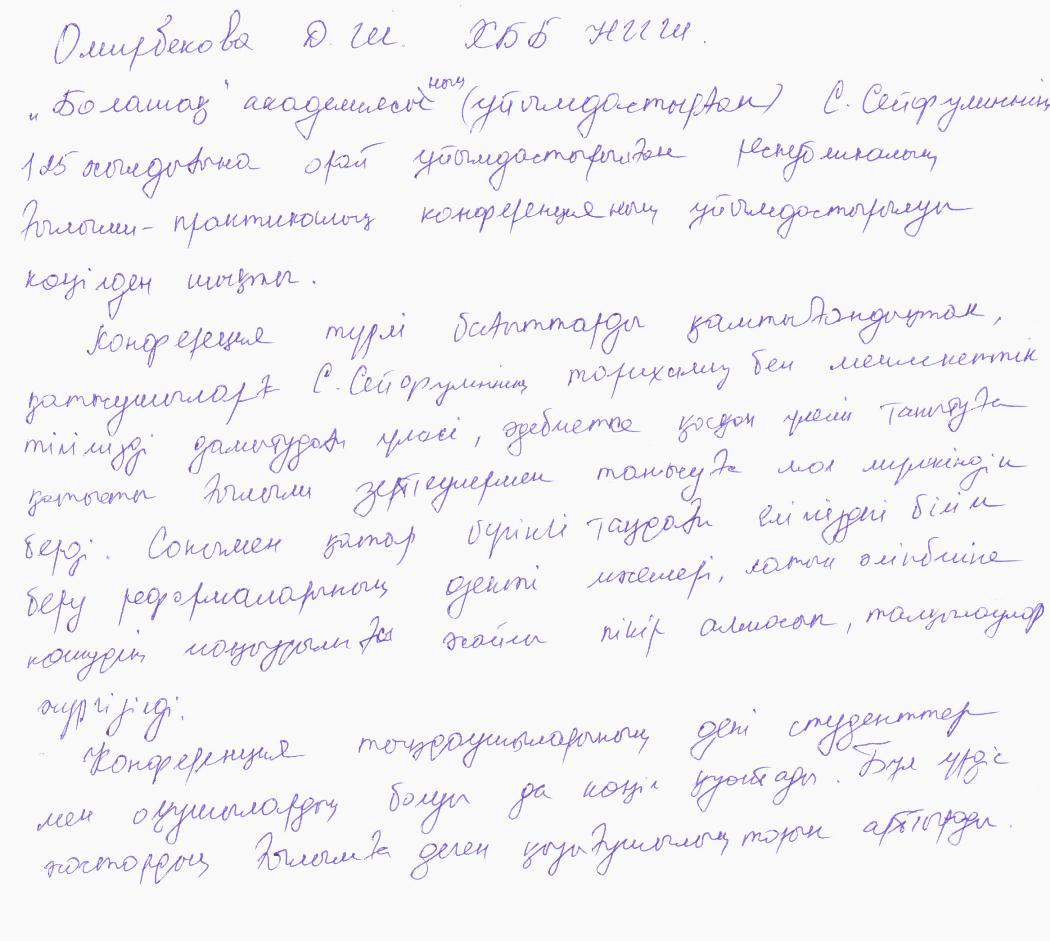 Омирбекова Д. Ш. ХББ НИШ.
„Болашақ" академиясының (ұйымдастырған) С. Сейфуллиннің
125 жылдығына орай ұйымдастырылған республикалық
ғылыми-практикалық конференцияның ұйымдастырылуы
көңілден шықты.
Конференция түрлі бағыттарды қамтығандықтан,
қатысушыларға С. Сейфуллиннің тарихымыз бен мемлекеттік
тілімізді дамытудағы үлесі, әдебиетке қосқан үлесін танытуға
қатысты ғылыми зерттеулермен танысуға мол мүмкіндік
берді. Сонымен қатар бүгінгі таңдағы еліміздегі білім
беру реформаларының өзекті мәселері, латын әліпбиіне
көшудің маңыздылығы жайлы пікір алмасып, талқылаулар
жүргізілді.
Конференция тыңдаушыларының дені студенттер
мен оқушылардың болуы да көңіл қуантады. Бұл үрдіс
жастардың ғылымға деген қызығушылықтарын арттырады.